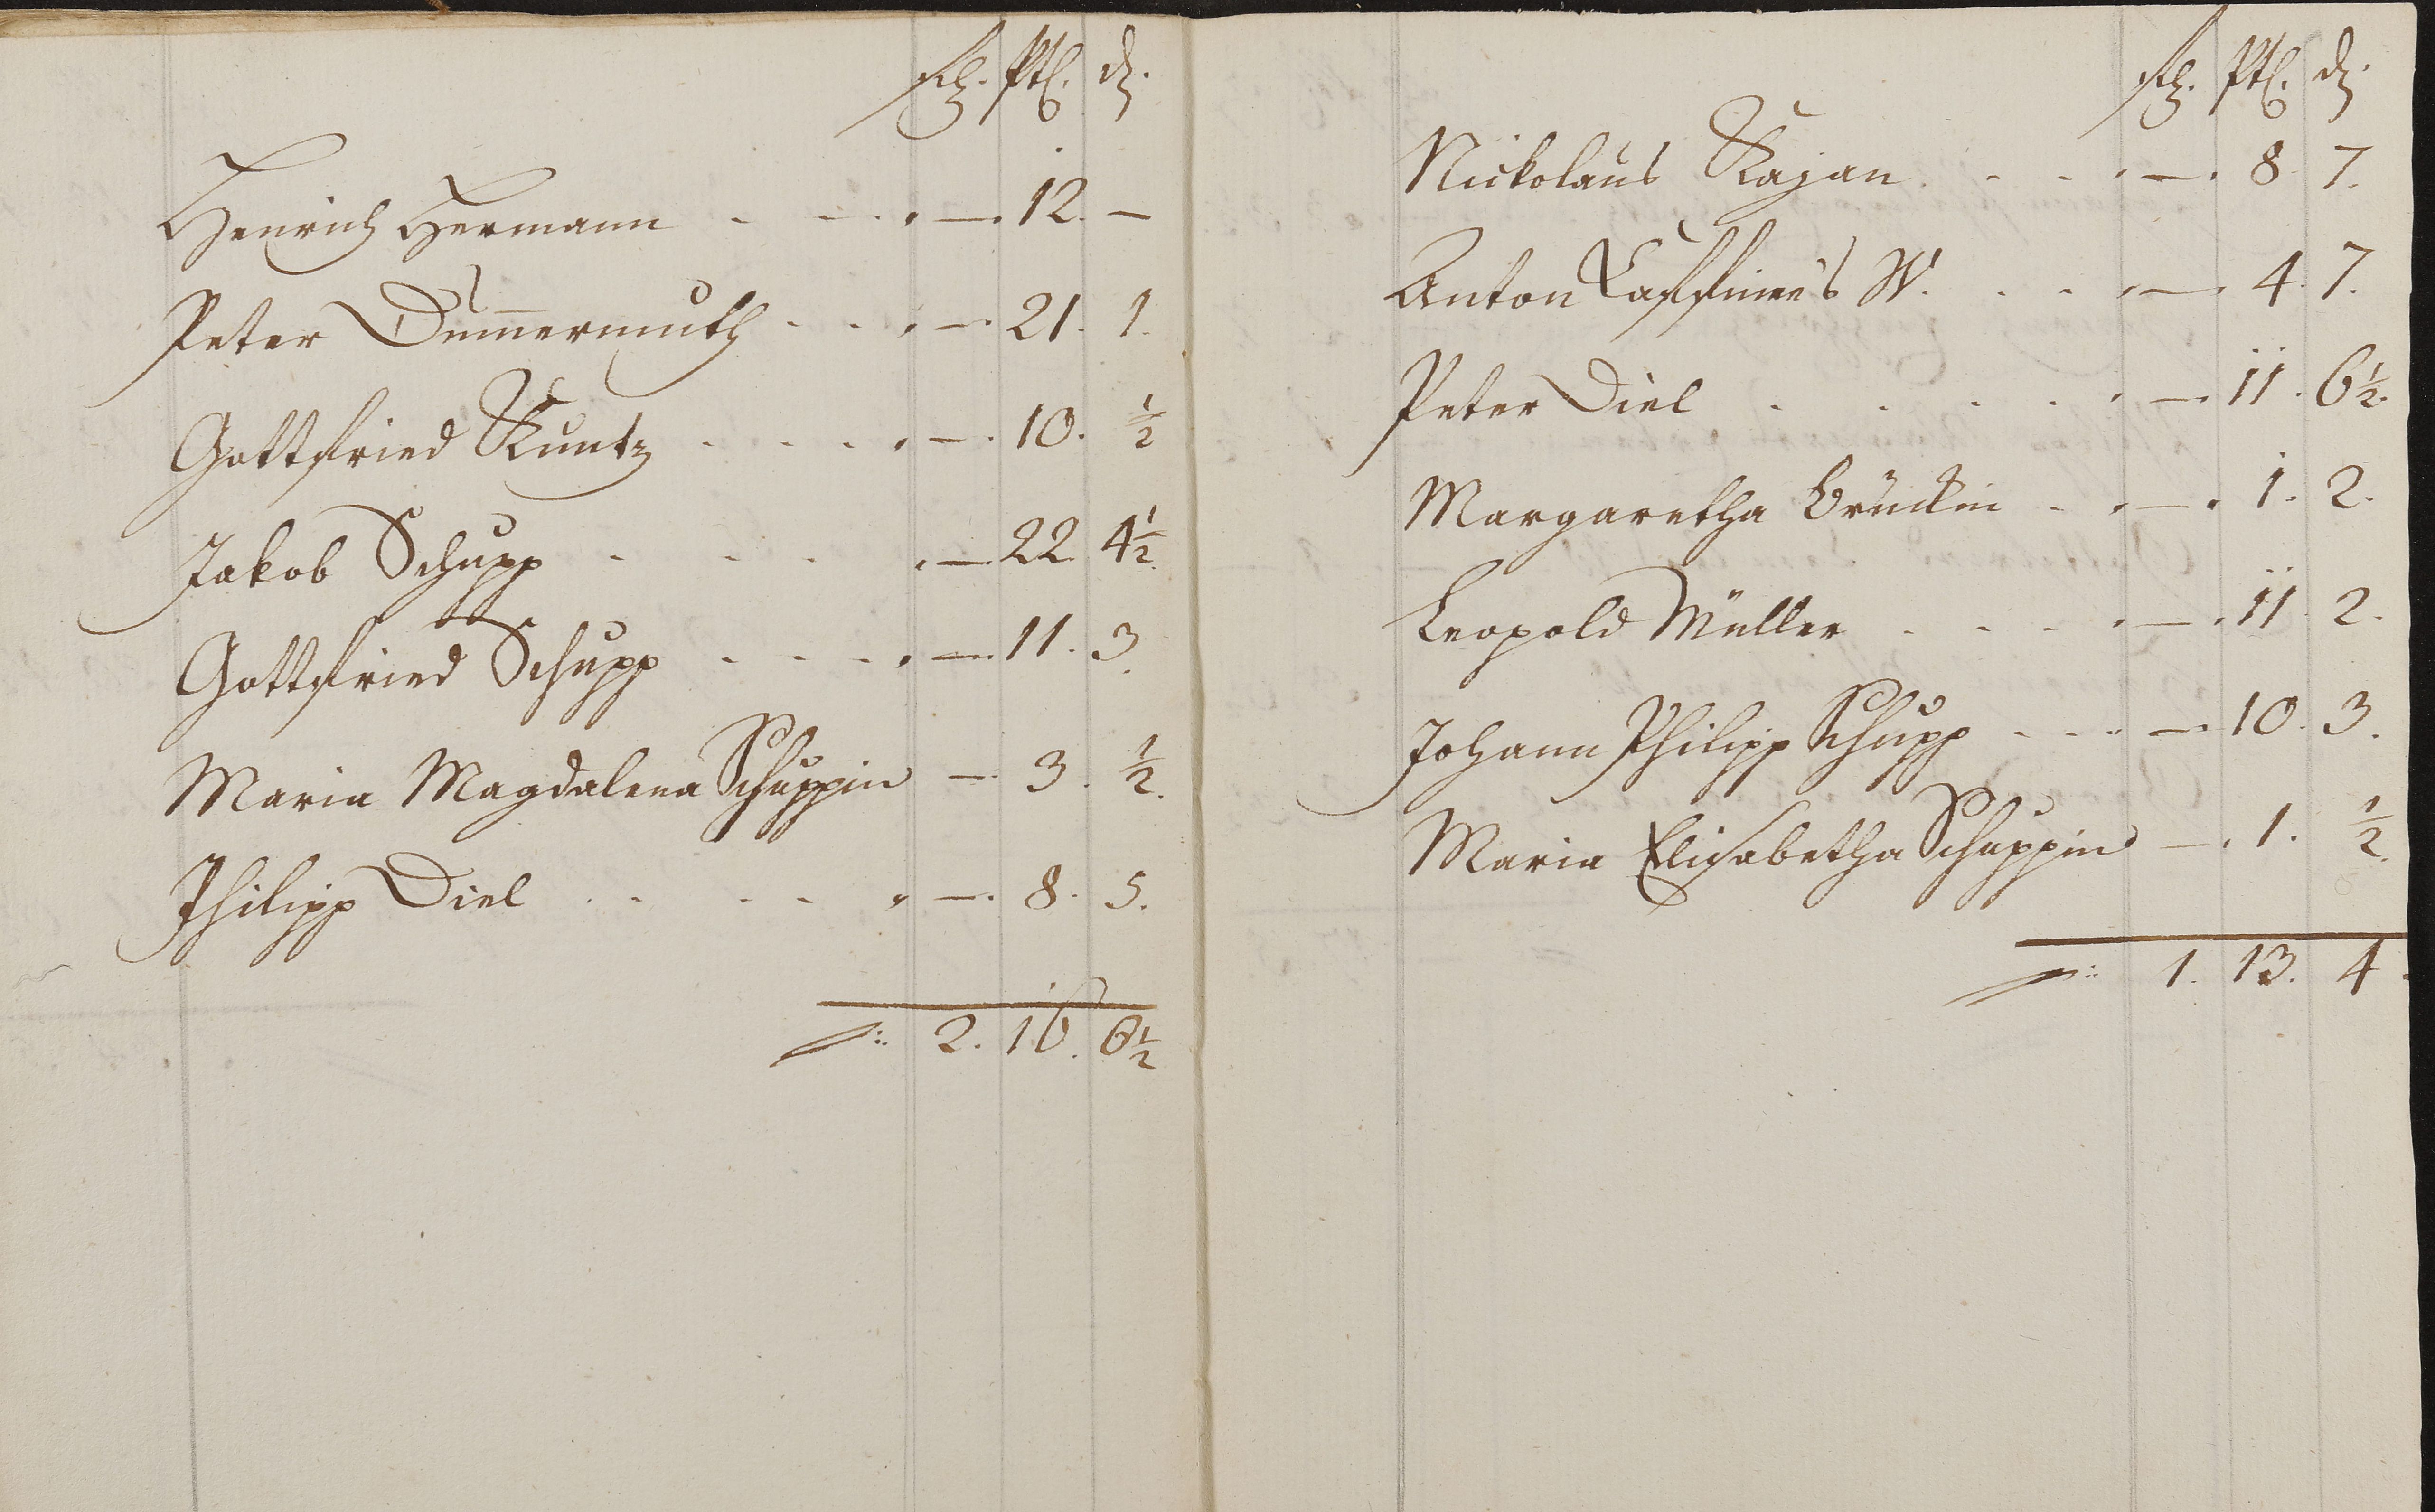 fl. Btz. d.
Henrich Hermann - - . — . 12. —
Peter Dum̄ermuth - - . — . 21. 1.
Gottfried Kuntz - - - . — . 10. ½
Jakob Schupp - - - . — 22. 4½.
Gottfried Schupp - - - . — . 11. 3.
Maria Magdalena Schuppin — . 3. ½.
Philipp Diel - - - - . — . 8. 5.
2. 16. 6½
Nickolaus Kajan. - - . — . 8. 7.
Anton W. - - . — 4. 7.
Peter Diel - - - - . — . 11. 6½.
Margaretha Brückin - . — . 1. 2.
Leopold Müller - - - . — . 11. 2.
Johann Philipp Schupp - - - — . 10. 3.
Maria Elisabetha Schuppin — . 1. ½.
1. 13. 4.